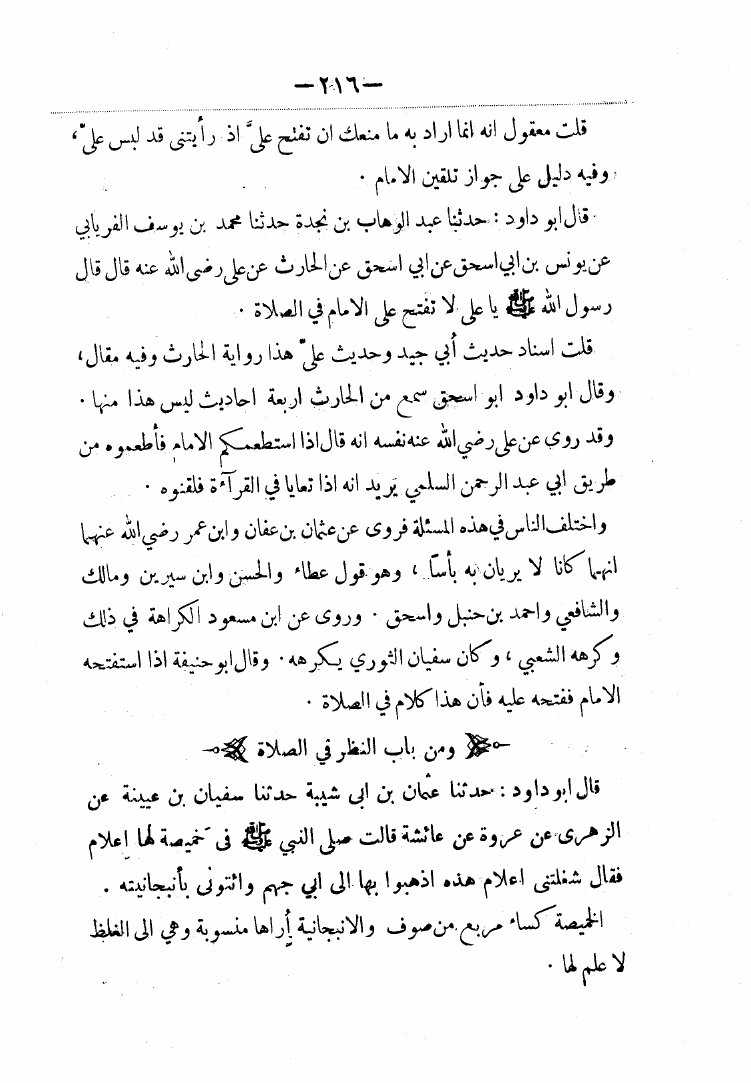 — ٢١٦ —
قلت معقول انه انما اراد به ما منعك ان تفتح عليَّ اذ رأيتنى قد لبس علىّ ،
وفيه دليل على جواز تلقين الامام .
قال ابو داود : حدثنا عبد الوهاب بن نجدة حدثنا محمد بن يوسف الفريابي
عن يونس بن ابي اسحق عن ابي اسحق عن الحارث عن على رضى الله عنه قال قال
رسول الله ﷺ يا على لا تفتح على الامام في الصلاة .
قلت اسناد حديث أبي جيد وحديث علىّ هذا رواية الحارث وفيه مقال ،
وقال ابو داود ابو اسحق سمع من الحارث اربعة احاديث ليس هذا منها .
وقد روى عن على رضي الله عنه نفسه انه قال اذا استطعمكم الامام فأطعموه من
طريق ابي عبد الرحمن السلمي يريد انه اذا تعايا في القرآءة فلقنوه .
واختلف الناس في هذه المسئلة فروى عن عثمان بن عفان وابن عمر رضي الله عنهما
انهما كانا لا يريان به بأسًا ، وهو قول عطاء والحسن وابن سيرين ومالك
والشافعي واحمد بن حنبل واسحق . وروى عن ابن مسعود الكراهة في ذلك
وكرهه الشعبي ، وكان سفيان الثوري يكرهه . وقال ابو حنيفة اذا استفتحه
الامام ففتحه عليه فأن هذا كلام في الصلاة .
ومن باب النظر في الصلاة
قال ابو داود : حدثنا عثمان بن ابى شيبة حدثنا سفيان بن عيينة عن
الزهرى عن عروة عن عائشة قالت صلى النبي ﷺ فى خميصة لها إعلام
فقال شغلتنى اعلام هذه اذهبوا بها الى ابي جهم وائتونى بأنبجانيته .
الخميصة كساء مربع من صوف والانبجانية أراها منسوبة وهي الى الغلظ
لا علم لها .